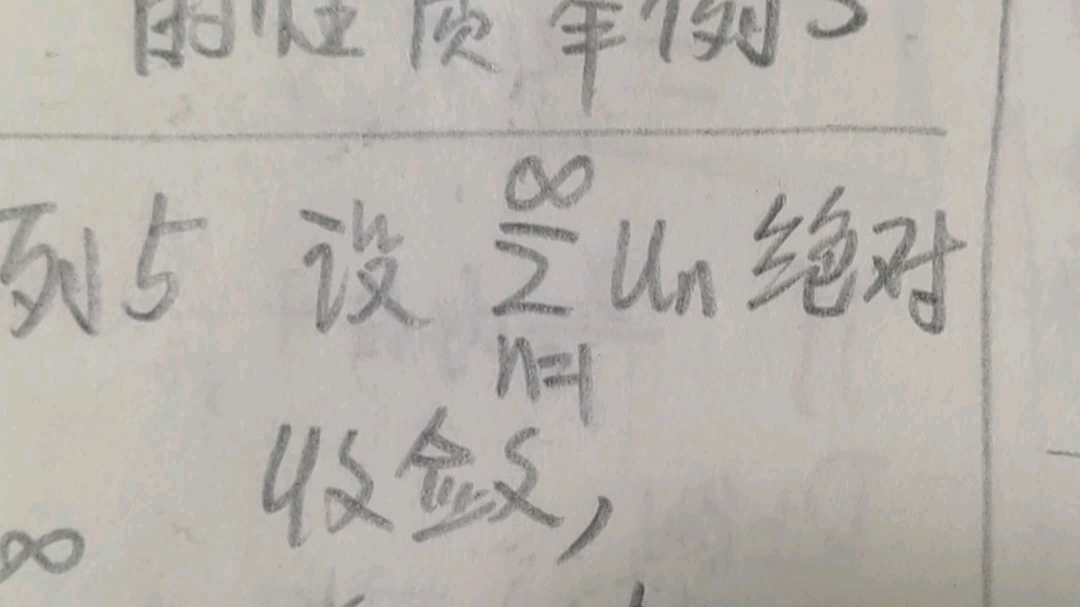 的性质 举例5
列5 设 ∞∑n=1 Un 绝对
收敛,
∞